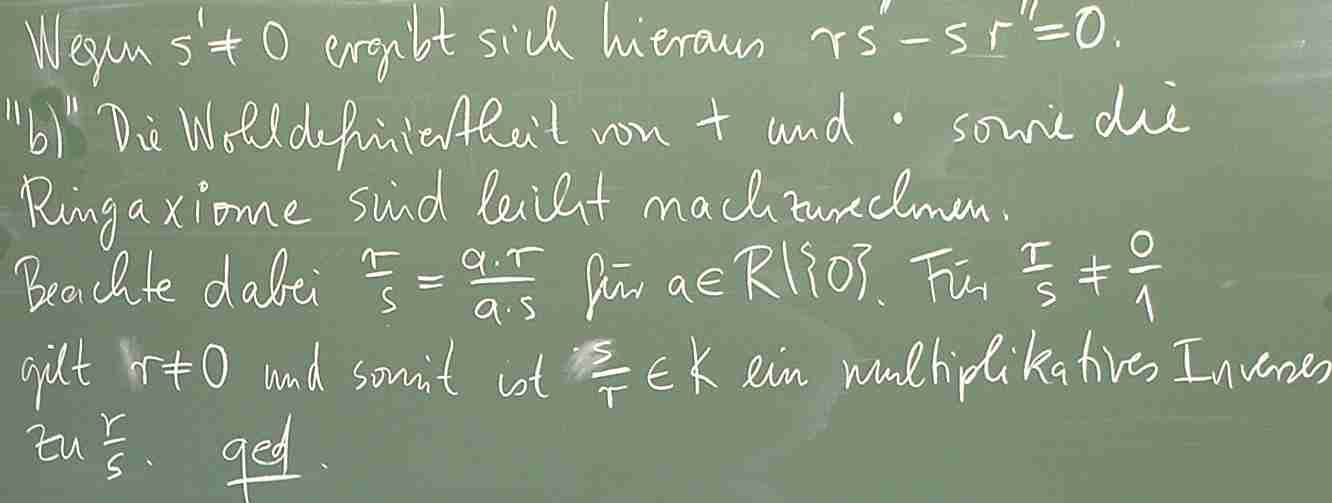 Wegen s' ≠ 0 ergibt sich hieraus rs'' - sr'' = 0.
"b)" Die Wohldefiniertheit von + und · sowie die
Ringaxiome sind leicht nachzurechnen.
Beachte dabei r/s = a·r/a·s für a ∈ R\{0}. Für r/s ≠ 0/1
gilt r ≠ 0 und somit ist s/r ∈ K ein multiplikatives Inverses
zu r/s. qed.